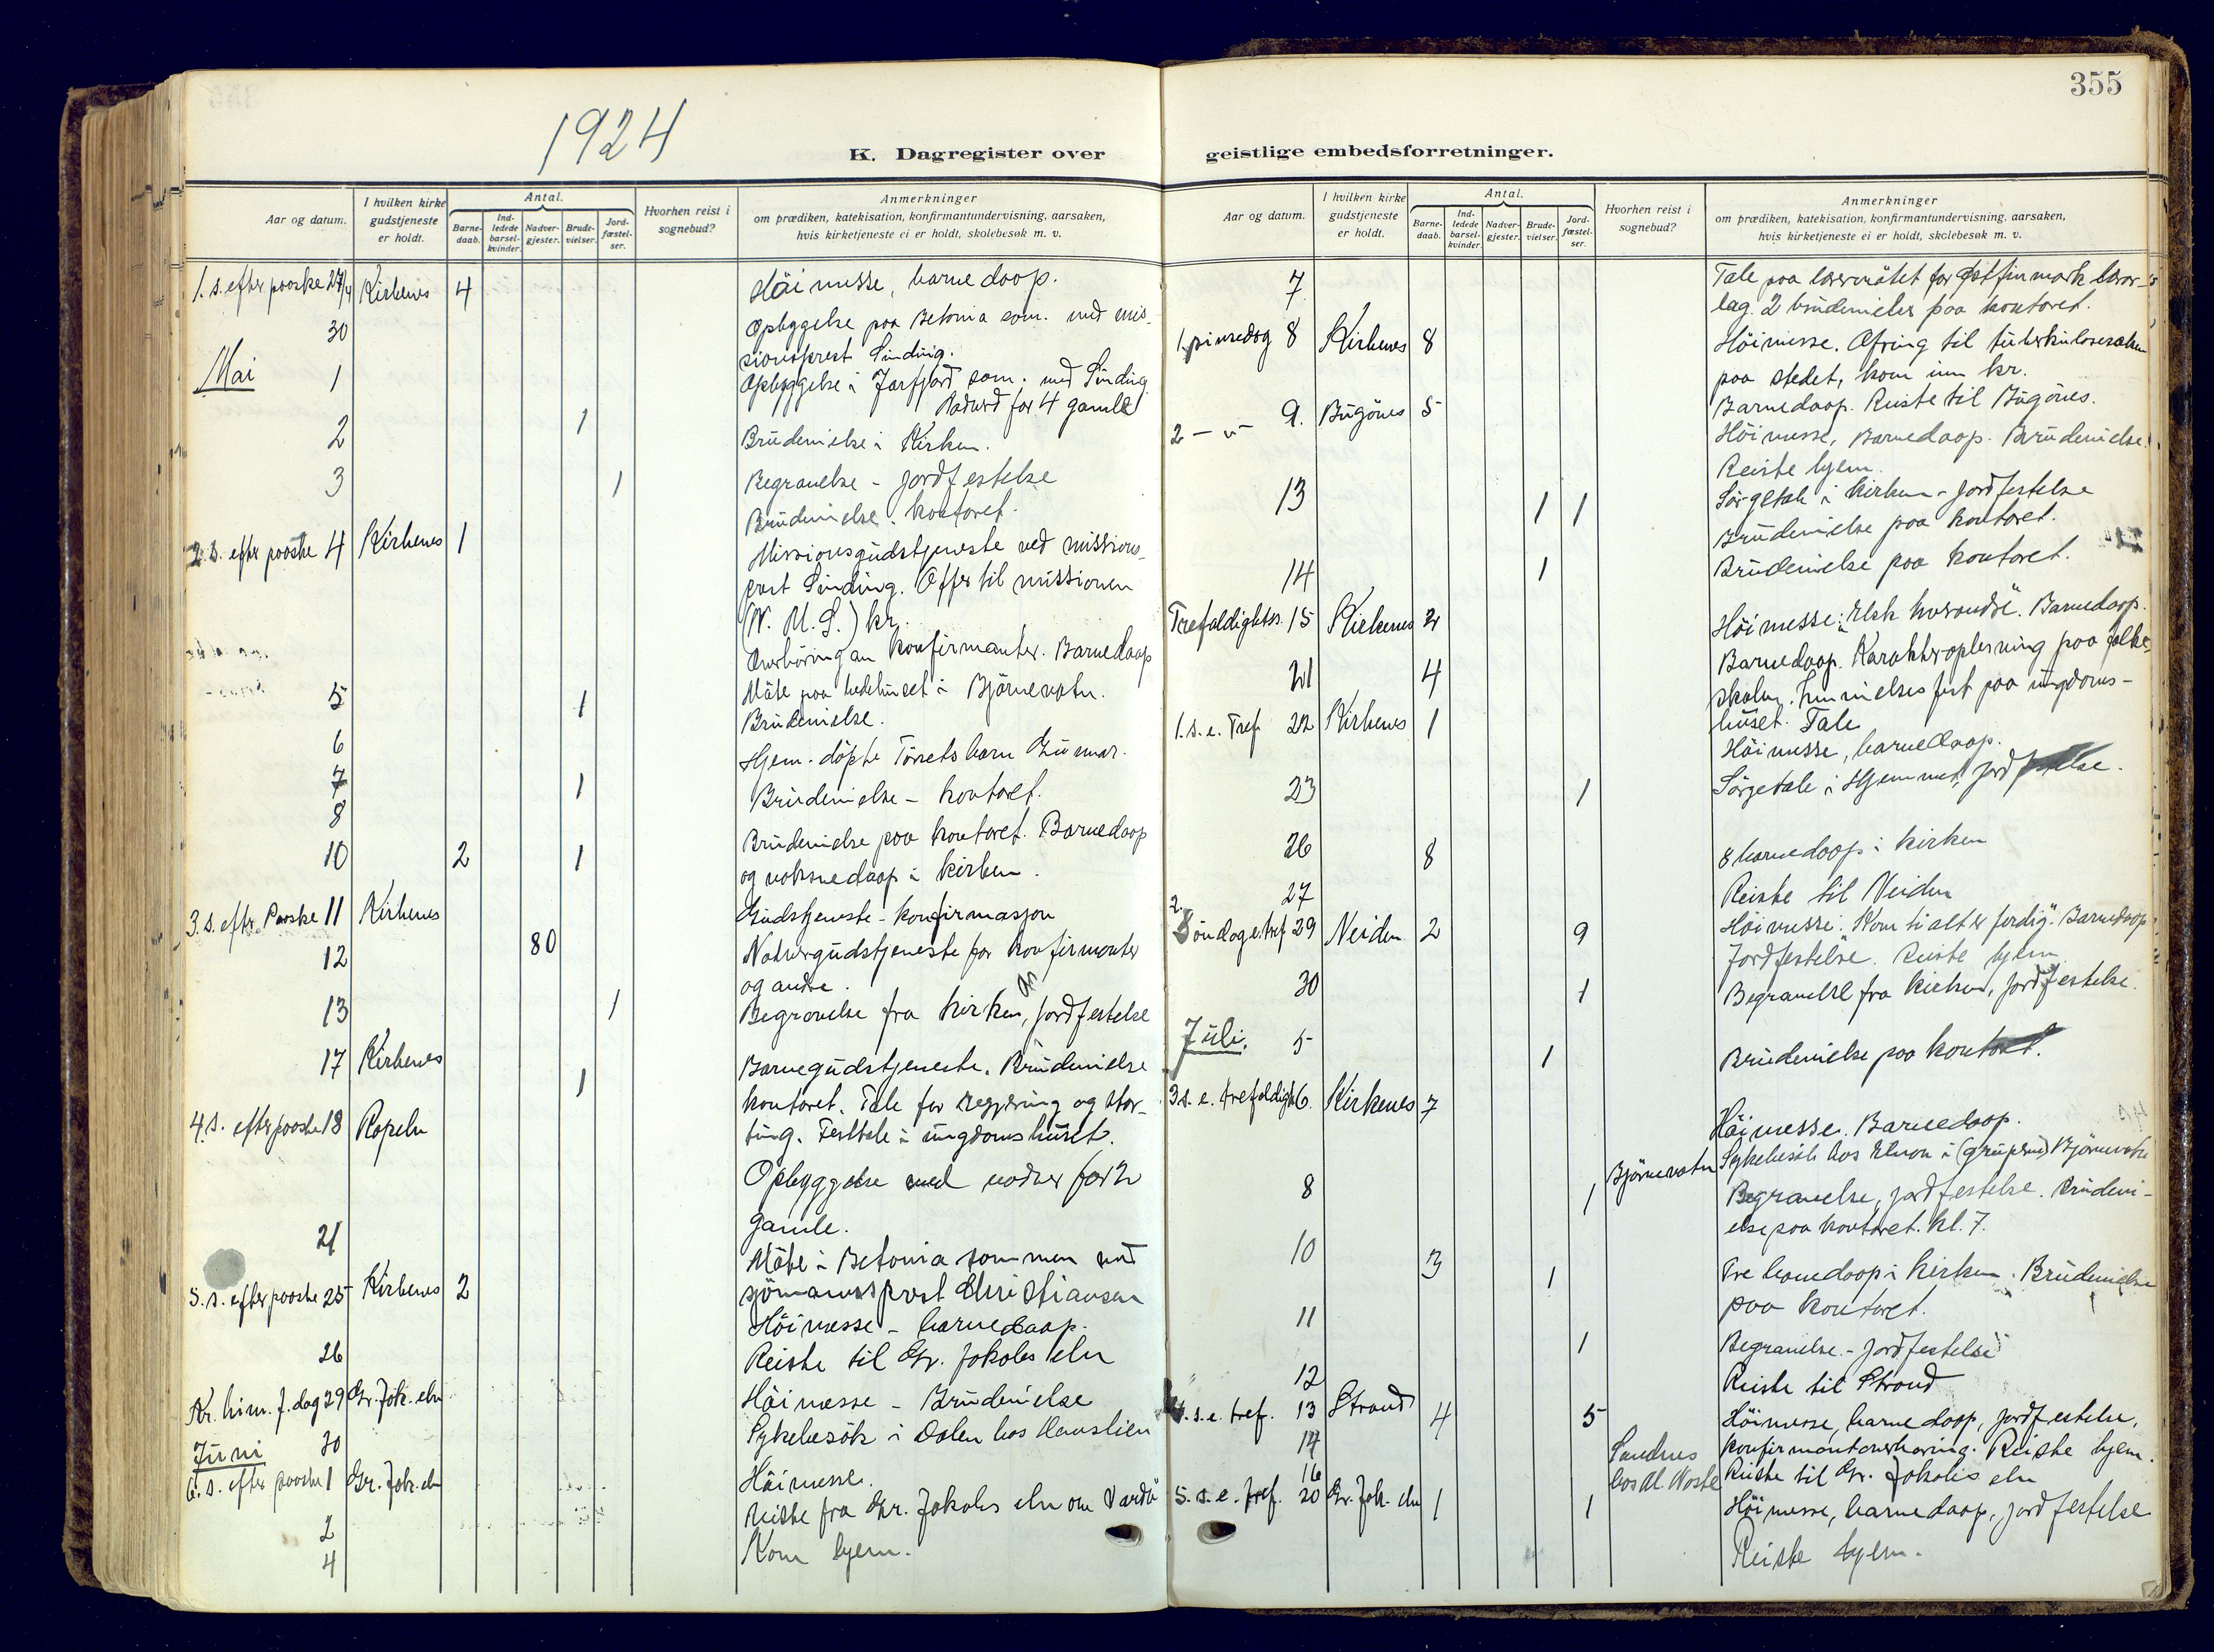 355
1924
K. Dagregister over
geistlige embedsforretninger.
Aar og datum.
I hvilken kirke gudstjeneste er holdt.
Antal.
Barne-daab.
Ind-ledede barsel-kvinder.
Nadver-gjester.
Brude-vielser.
Jord-fæstel-ser.
Hvorhen reist i sognebud?
Anmerkninger
om prædiken, katekisation, konfirmantundervisning, aarsaken,
hvis kirketjeneste ei er holdt, skolebesøk m. v.
1. s. efter paaske 27/4 Kirkenes 4 Höimesse, barnedaap.
30 Opbyggelse paa Betania sam. med mis-
sionsprest Sinding.
Mai 1 Opbyggelse i Jarfjord sam. med Sinding
Nadverd for 4 gamle
2 1 Brudevielse i Kirken.
3 1 Begravelse - jordfestelse
Brudevielse. kontoret.
2. s. efter paaske 4 Kirkenes 1 Missionsgudstjeneste ved missions-
prest Sinding. Offer til missionen
(N. M. S.) kr.
Overhöring av konfirmanter. Barnedaap
5 1 Möte paa bedehuset i Björnevatn.
Brudevielse.
6 Hjem. döpte barn Gunnar.
7 1 Brudevielse - kontoret.
8
10 2 1 Brudevielse paa kontoret. Barnedaap
og voksnedaap i kirken.
3. s. efter Paaske 11 Kirkenes Gudstjeneste - konfirmasjon
12 80 Natvergudstjeneste for konfirmanter
og andre.
13 1 Begravelse fra kirken, jordfestelse
17 Kirkenes 1 Barnegudstjeneste. Brudevielse
kontoret. Tale for regjering og stor-
ting. Festtale i ungdomshuset.
4. s. efter paaske 18 Ropelv Opbyggelse med nadver for 2
gamle.
21 Möte i Betania sammen med
sjömannsprest Christiansen
5. s. efter paaske 25 Kirkenes 2 Höimesse - barnedaap.
26 Reiste til Gr. Jakobs elv
Kr. him. f. dag 29 Gr. Jak. elv Höimesse - Brudevielse
30 Sykebesök i Dalen hos Hanslien
Juni
6. s. efter paaske 1 Gr. Jak. elv Höimesse.
2 Reiste fra Gr. Jakobs elv om Vardö
4 Kom hjem.
Aar og datum.
I hvilken kirke gudstjeneste er holdt.
Antal.
Barne-daab.
Ind-ledede barsel-kvinder.
Nadver-gjester.
Brude-vielser.
Jord-fæstel-ser.
Hvorhen reist i sognebud?
Anmerkninger
om prædiken, katekisation, konfirmantundervisning, aarsaken,
hvis kirketjeneste ei er holdt, skolebesøk m. v.
7 Tale paa lærermötet for Östfinmark lærer-
lag. 2 brudevielser paa kontoret.
1. pinsedag 8 Kirkenes 8 Höimesse. Ofring til tuberkulosesaken
paa stedet, kom inn kr.
Barnedaap. Reiste til Bugönes.
2 - v - 9. Bugönes 5 Höimesse, Barnedaap. Brudevielse.
Reiste hjem.
13 1 1 Sörgetale i kirken - jordfestelse
Brudevielse paa kontoret.
14 1 Brudevielse paa kontoret.
Trefoldighetss. 15 Kirkenes 2 Höimesse: "Elsk hverandre". Barnedaap.
21 4 Barnedaap. Karakteropplesning paa folke-
skolen. fest paa ungdoms-
huset. Tale
1. s. e. Tref 22 Kirkenes 1 Höimesse, barnedaap.
23 1 Sörgetale i Hjemmet, jordfestelse.
26 8 8 barnedaap i kirken
27 Reiste til Neiden
2. Söndag e. tref 29 Neiden 2 9 Höimesse: "Kom ti alt er ferdig". Barnedaap
Jordfestelse. Reiste hjem
30 1 Begravelse fra kirken, jordfestelse.
Juli. 5 1 Brudevielse paa kontoret.
3 s. e. trefoldigh 6. Kirkenes 7 Höimesse. Barnedaap.
Björnevatn Sykebesök hos i Björnevatn
8 1 Begravelse, jordfestelse. Brudevi-
else paa kontoret. kl. 7.
10 3 1 Tre barnedaap i kirken. Brudevielse
paa kontoret.
11 1 Begravelse. - Jordfestelse
12 Reiste til Strand
4. s. e. tref. 13 Strand 4 5 Höimesse, barnedaap, jordfestelse,
14 Sandnes konfirmantoverhöring. Reiste hjem.
16 hos Reiste til Gr. Jakobs elv
5. s. e. tref. 20 Gr. Jak. elv 1 1 Höimesse, barnedaap, jordfestelse
Reiste hjem.